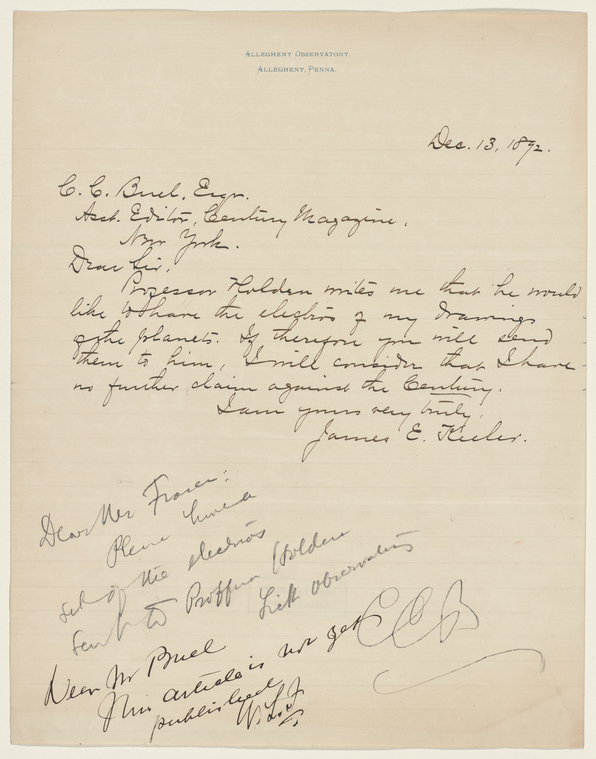 ALLEGHENY OBSERVATORY.
ALLEGHENY, PENNA.
Dec. 13, 1892.
C. C. Buel, Esqr.
Asst. Editor, Century Magazine,
New York.
Dear Sir,
Professor Holden writes me that he would
like to have the electros of my drawings
of the planets. If therefore you will send
them to him, I will consider that I have
no further claim against the Century.
I am yours very truly,
James E. Keeler.
Dear Mr Fraser:
Please have a
set of the electros
sent to Professor Holden
Lick Observatory
CCB
Dear Mr Buel
This article is not yet
published